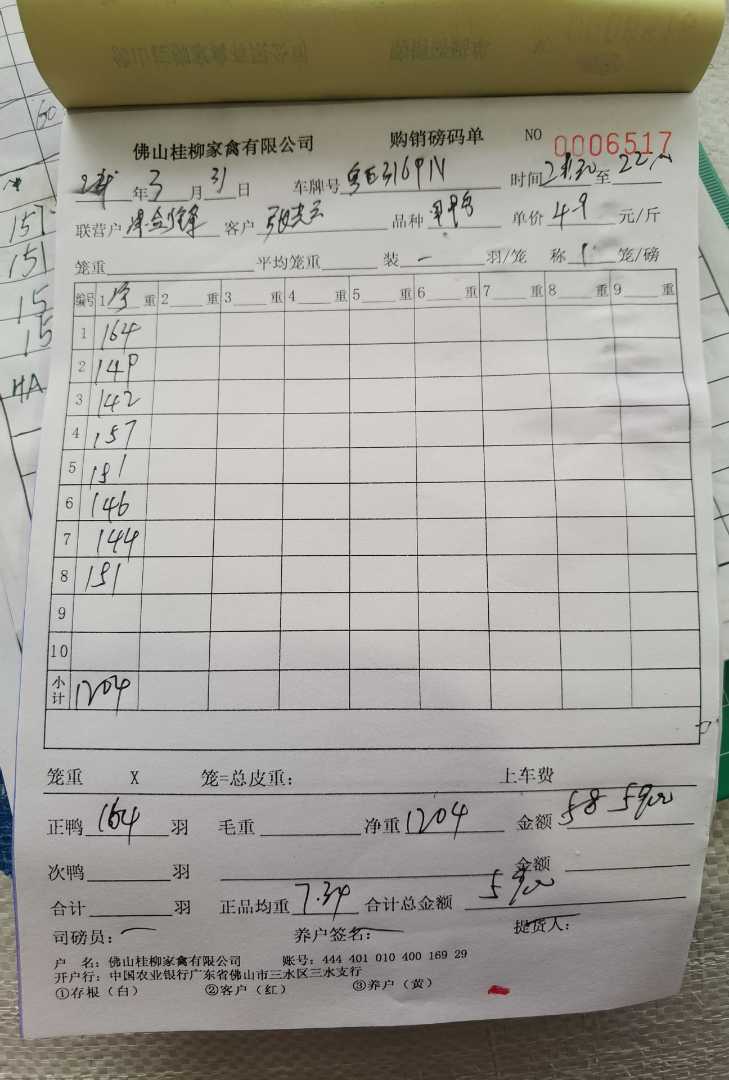 佛山桂柳家禽有限公司 购销磅码单 NO 0006517
年 3 月 31 日 车牌号 时间 21:30 至 22
联营户 客户 品种 单价 4.9 元/斤
笼重 平均笼重 装 一 羽/笼 称 1 笼/磅
编号 1 重 2 重 3 重 4 重 5 重 6 重 7 重 8 重 9 重
1 164
2 149
3 142
4 157
5 151
6 146
7 144
8 151
9
10
小计 1204
笼重 X 笼=总皮重: 上车费
正鸭 164 羽 毛重 净重 1204 金额 58 5900
次鸭 羽 金额
合计 羽 正品均重 7.34 合计总金额 5900
司磅员: 养户签名: 提货人:
户 名: 佛山桂柳家禽有限公司 账号: 444 401 010 400 169 29
开户行: 中国农业银行广东省佛山市三水区三水支行
①存根(白) ②客户(红) ③养户(黄)
151
151
15
15
HA